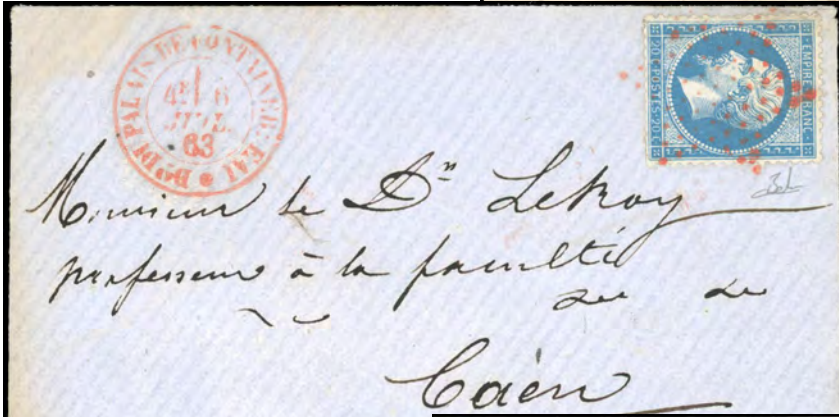 Bau DU PALAIS DE FONTAINEBLEAU
4E 6
JUIL
63
EMPIRE FRANC
20 C POSTES 20 C
Monsieur le Dr LeRoy
professeur à la faculté
de
Caen